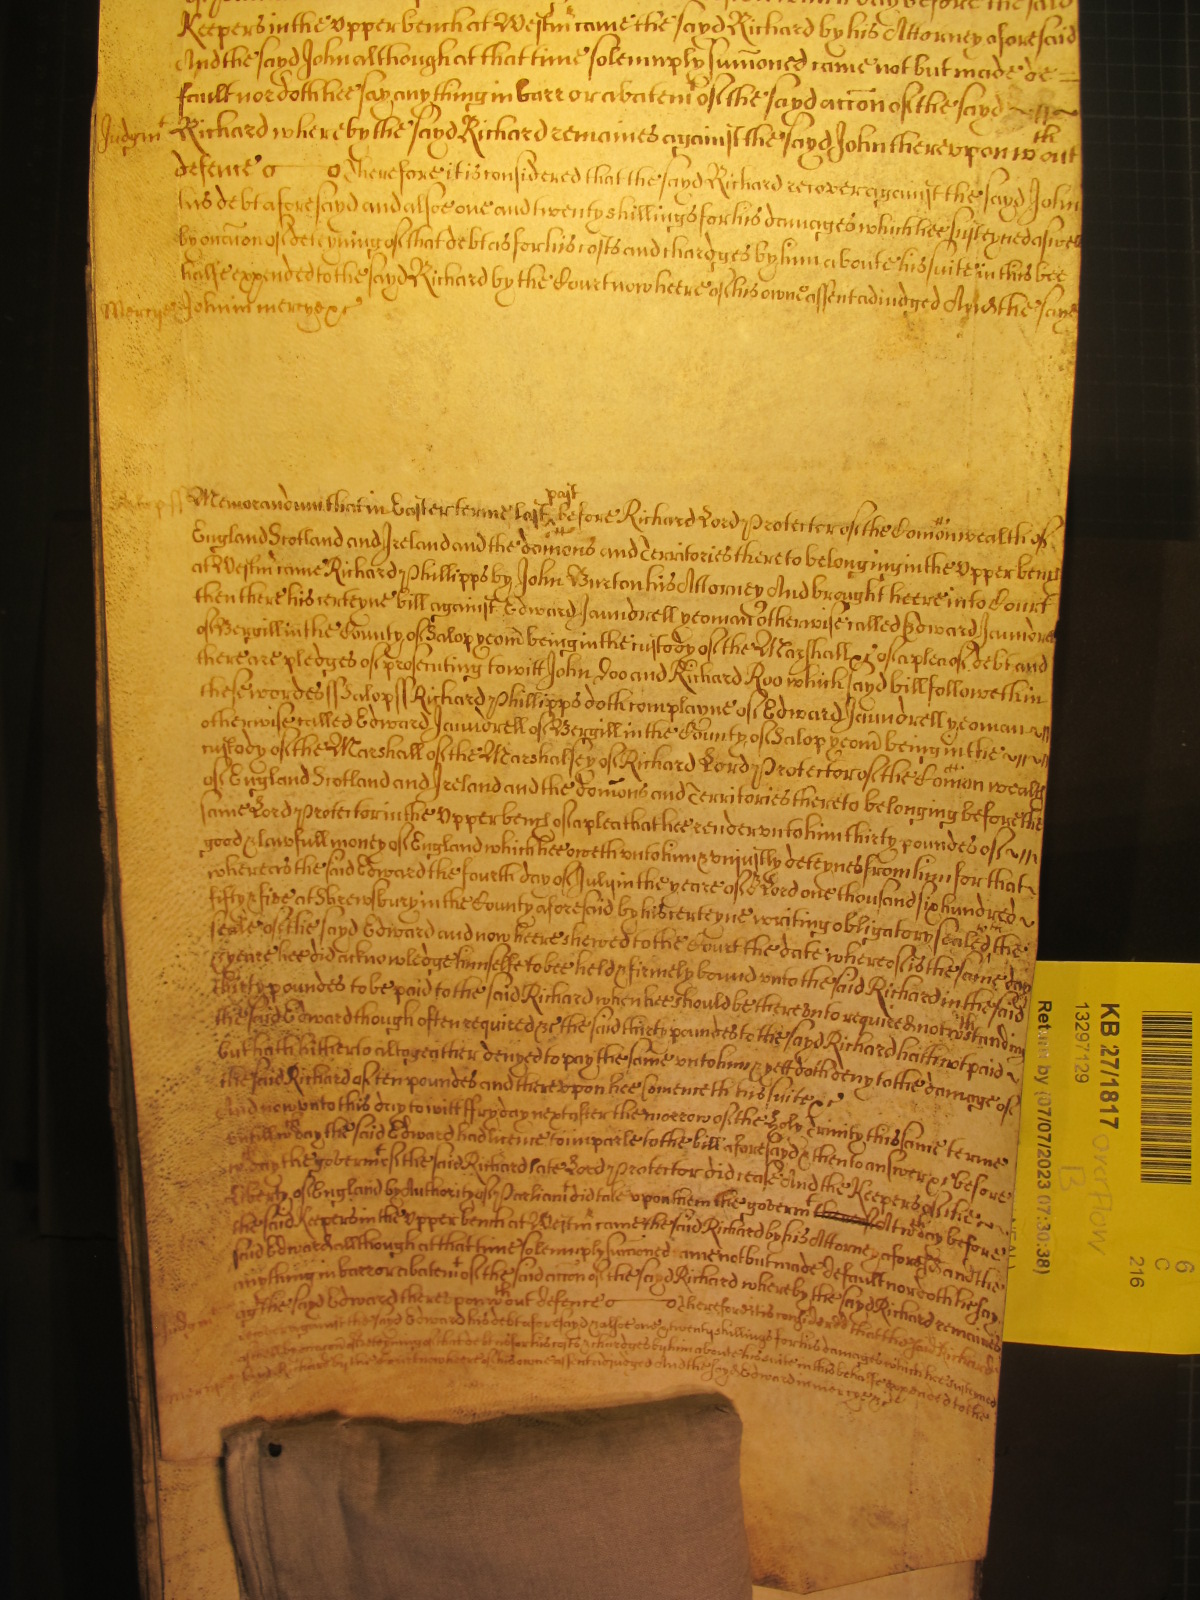 Keepers in the Upper bench at Westm̃ came the sayd Richard by his Attorney aforesaid
And the sayd John although at that time solempnly sum̃oned came not but made de=
fault nor doth hee say anything in barr or abatemt of the sayd acc̃on of the sayd
Judgmt Richard whereby the sayd Richard remaines against the sayd John thereupon wthout
defence Therefore it is considered that the sayd Richard recover against the sayd John
his debt aforesayd and alsoe one and twenty shillings for his damages which hee susteyned aswell
by occac̃on of deteyning of that debt as for his costs and chardges by him aboute his suite in this bee
halfe expended to the sayd Richard by the Court now heere of his owne assent adiudged And the sayd
Mercye John in mercye &c
Salop ss Memorandum that in Easter terme last past before Richard Lord Protector of the Com̃onwealth of
England Scotland and Ireland and the domĩons and Territories thereto belonging in the Upper bench
at Westm̃ came Richard Phillipps by John Burton his Attorney And brought heere into Court
then there his certeyne bill against Edward Jaundrell yeoman otherwise called Edward Jaundrell
of Bergill in the County of Salop yeom̃ being in the custody of the Marshall &c of a plea of debt and
there are pledges of prosecuting to witt John Doo and Richard Roo which sayd bill followeth in
these wordes ss Salop ss Richard Phillipps doth complayne of Edward Jaundrell yeoman
otherwise called Edward Jaundrell of Bergill in the County of Salop yeom̃ being in the
custody of the Marshall of the Marshalsey of Richard Lord Protector of the Com̃on wealth
of England Scotland and Ireland and the domĩons and Territories thereto belonging before the
same Lord Protector in the Upper bench of a plea that hee render unto him thirty poundes of
good & lawfull money of England which hee oweth unto him & uniustly deteynes from him for that
whereas the said Edward the fourth day of July in the yeare of or Lord one thousand six hundred
fifty & five at Shrewsbury in the County aforesaid by his certeyne writing obligatory sealed wth the
seale of the sayd Edward and now heere shewed to the Court the date whereof is the same day
& yeare hee did acknowledge himselfe to bee held & firmely bound unto the said Richard in the said
thirty poundes to be paid to the said Richard when hee should be thereunto required notwthstanding
the said Edward though often required &c the said thirty poundes to the sayd Richard hath not paid
but hath hitherto altogeather denyed to pay the same unto him & yett doth deny to the damage of
the said Richard of ten poundes and thereupon hee com̃enceth his suite &c
And now unto this day to witt ffryday next after the morrow of the Holy Trinity this same terme
untill wch day the said Edward had licence to imparle to the bill aforesayd & then to answer &c before
wch day the governmt of the said Richard late Lord Protector did cease And the Keepers of the
liberty of England by Authority of Parliamt did take upon them the governmt At wch day before
the said Keepers in the Upper bench at Westm̃ came the said Richard by his Attorney aforesaid and the
said Edward although at that time solempnly sum̃oned came not but made default nor doth hee say
anything in barr or abatemt of the said acc̃on of the sayd Richard whereby the sayd Richard remaines
agt the sayd Edward thereupon wthout defence Therefore it is considered that the said Richard
Judgmt recover against the said Edward his debt aforesayd & alsoe one & twenty shillings for his damages which hee susteyned
aswell by occac̃on of deteyning of that debt as for his costs & chardges by him aboute his suite in this behalfe expended to the
said Richard by the Court now heere of his owne assent adiudged And the sayd Edward in mercye &c
KB 27/1817
13297129
Return by (07/07/2023 07:30:38)
overflow
B
6
C
216